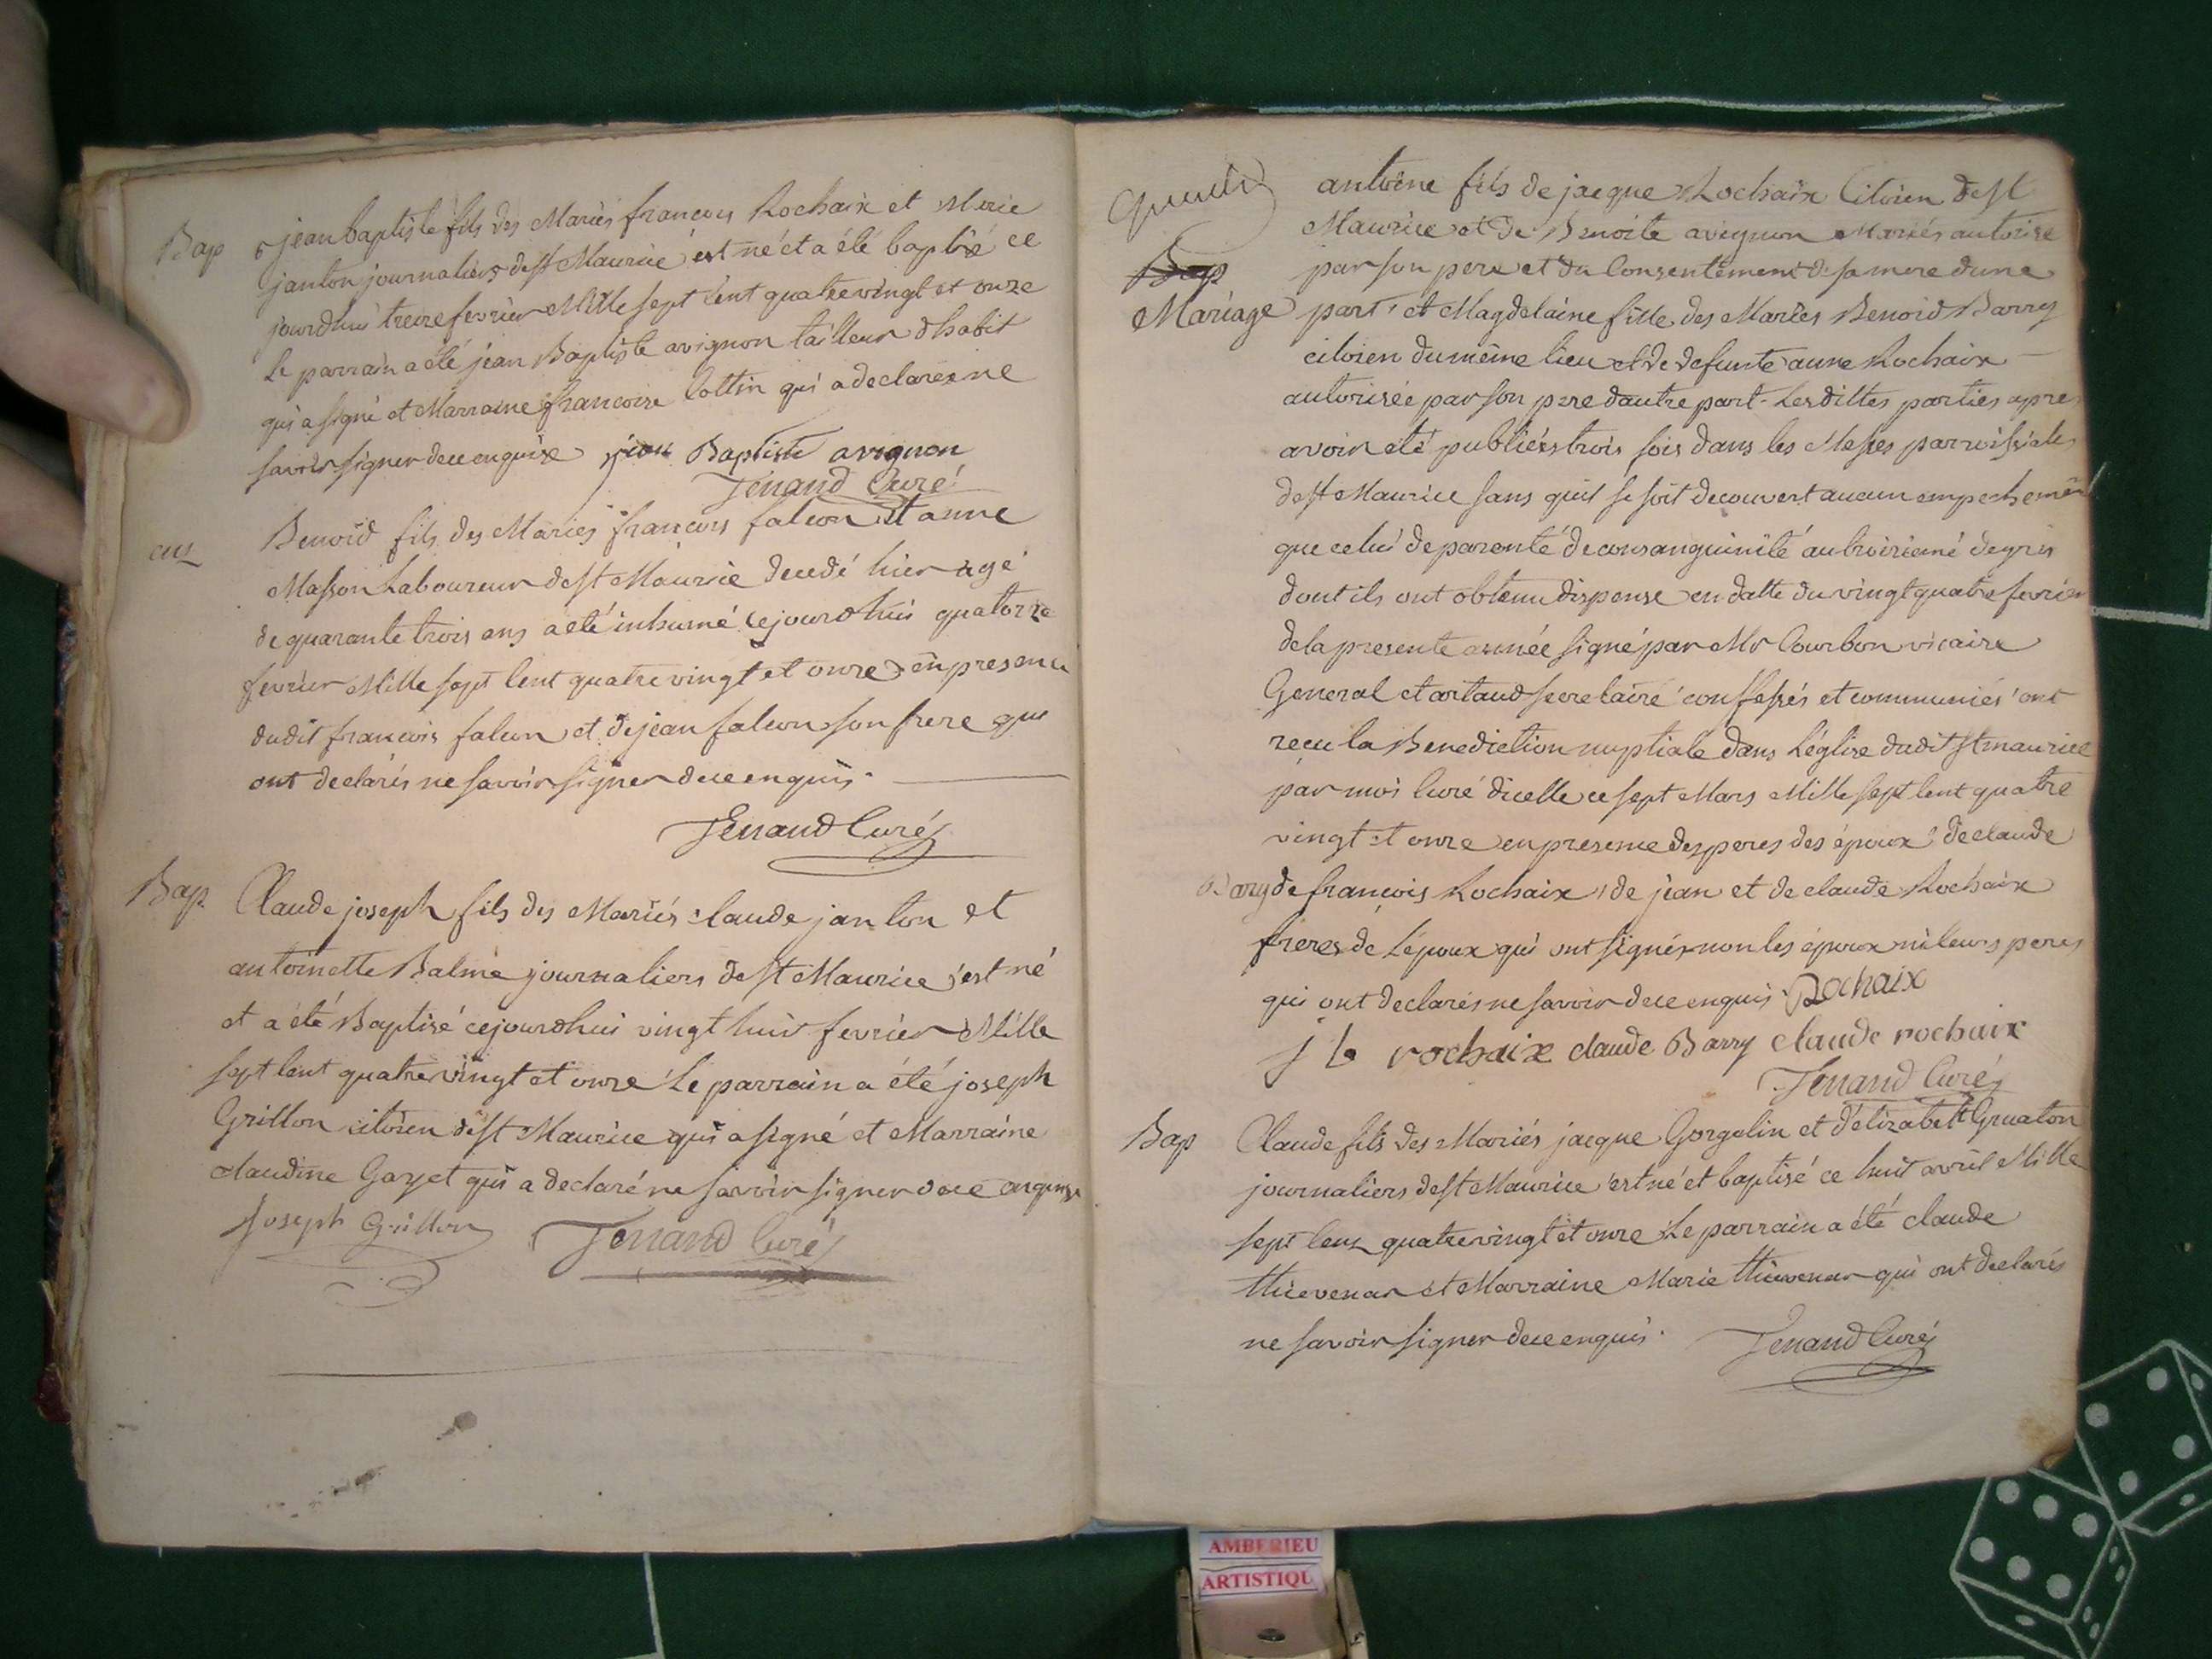 Bap jean baptiste fils des Mariés francois Rochaix et Merie
janton journaliers de st Maurice est né et a été baptisé ce
jourdhui treize fevrier Mille sept Cent quatrevingt et onze
Le parrain a été jean Baptiste avignon tailleur dhabit
qui a signé et Marraine francoise Cottin qui a declaré ne
savoir signer de ce enquise jean Baptiste avignon
Tenand Curé
Benoid fils des Mariés francois falcon et anne
Masson Laboureur de st Maurice decedé hier agé
de quarante trois ans a eté inhumé cejourdhui quatorze
fevrier Mille sept Cent quatre vingt et onze en presence
dudit francois falcon et de jean falcon son frere qui
ont declarés ne savoir signer de ce enquis.
Tenand Curé
Bap Claude joseph fils des Mariés claude janton et
antoinette Balme journaliers de st Maurice est né
et a été Baptisé cejourdhui vingt huit fevrier Mille
sept Cent quatre vingt et onze Le parrain a été joseph
Grillon citoien de st Maurice qui a signé et Marraine
claudine Gayet qui a declaré ne savoir signer de ce enquise
Joseph Grillon Tenand Curé
antoine fils de jacque Rochaix Citoien de st
Maurice et de Benoite avignon Mariés autorisé
Bap par son pere et du Consentement de sa mere dune
Mariage part et Magdelaine fille des Mariés Benoid Barry
citoien du même lieu et de defunte anne Rochaix
autorisée par son pere dautre part Lesdittes parties apres
avoir eté publiées trois fois dans les Messes parroissiales
de st Maurice sans quil se soit decouvert aucun empechement
que celui de parenté de consanguinité au troisieme degrés
dont ils ont obtenu dispense en datte du vingt quatre fevrier
de la presente année signé par Mr Courbon vicaire
General et artaud secretaire confessés et communiés ont
reçu la Benediction nuptiale dans L'église dudit st maurice
par moi Curé dicelle ce sept Mars Mille sept Cent quatre
vingt et onze en presence des peres des époux de claude
Barry de francois Rochaix, de jean et de claude Rochaix
freres de L'époux qui ont signés non les époux ni leurs peres
qui ont declarés ne savoir de ce enquis Rochaix
rochaix claude Barry claude rochaix
Tenand Curé
Bap Claude fils des Mariés jacque Gorgolin et d'élizabeth Gruaton
journaliers de st Maurice est né et baptisé ce huit avril Mille
sept Cent quatrevingt et onze Le parrain a été claude
thievenar et Marraine Marie thievenar qui ont declarés
ne savoir signer de ce enquis. Tenand Curé
AMBERIEU
ARTISTIQU